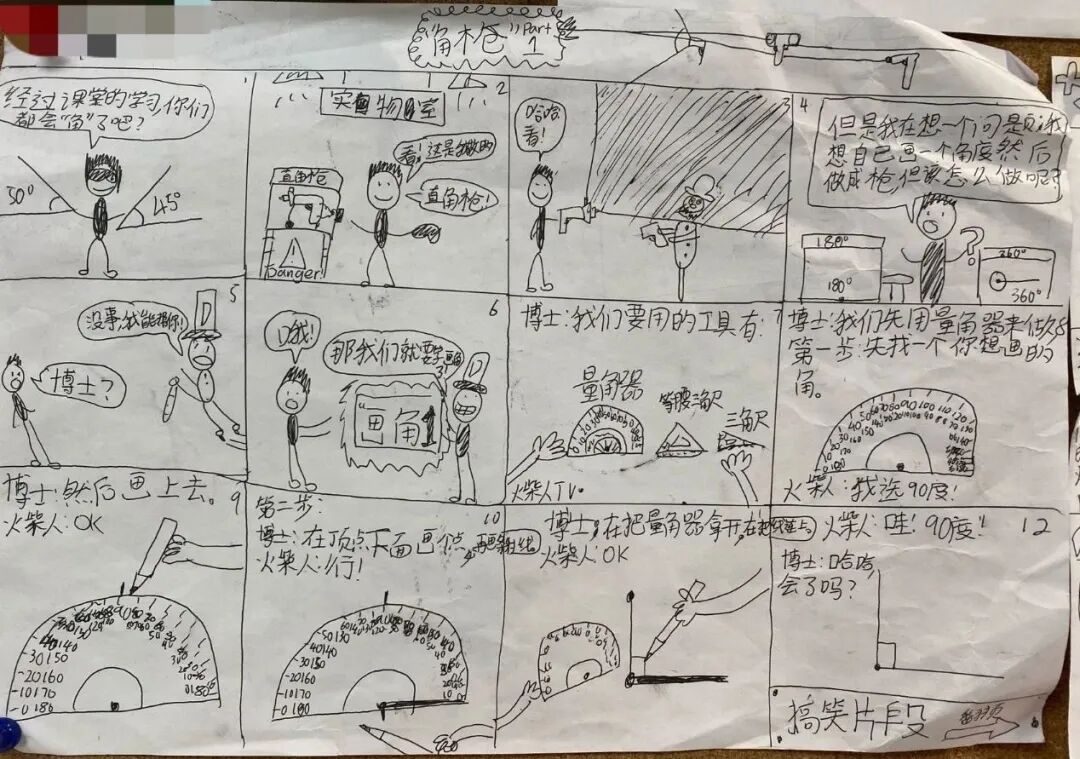 "角枪" Part 1
1
经过课堂的学习,你们
都会"角"了吧?
50°
45°
2
实物室
看!这是我做的
直角枪!
直角枪
Danger!
哈哈
看!
3
4
但是我在想一个问题,我
想自己画一个角度然后
做成枪但该怎么做呢?
180°
180°
360°
360°
5
没事,我能帮你!
D
博士?
6
D我!
那我们就要学画角
"画角1
D
7
博士:我们要用的工具有:
量角器
等腰三角尺
三角尺
火柴人TV.
8
博士:我们先用量角器来做
第一步:先找一个你想画的
角。
火柴人:我选90度!
9
博士:然后画上去。
火柴人:OK
10
第二步:
博士:在顶点下面画个点,再画条射线
火柴人:行!
博士:在把量角器拿开,在把线连上
火柴人:OK
12
火柴人:哇!90度!
博士:哈哈,
会了吗?
搞笑片段
翻页